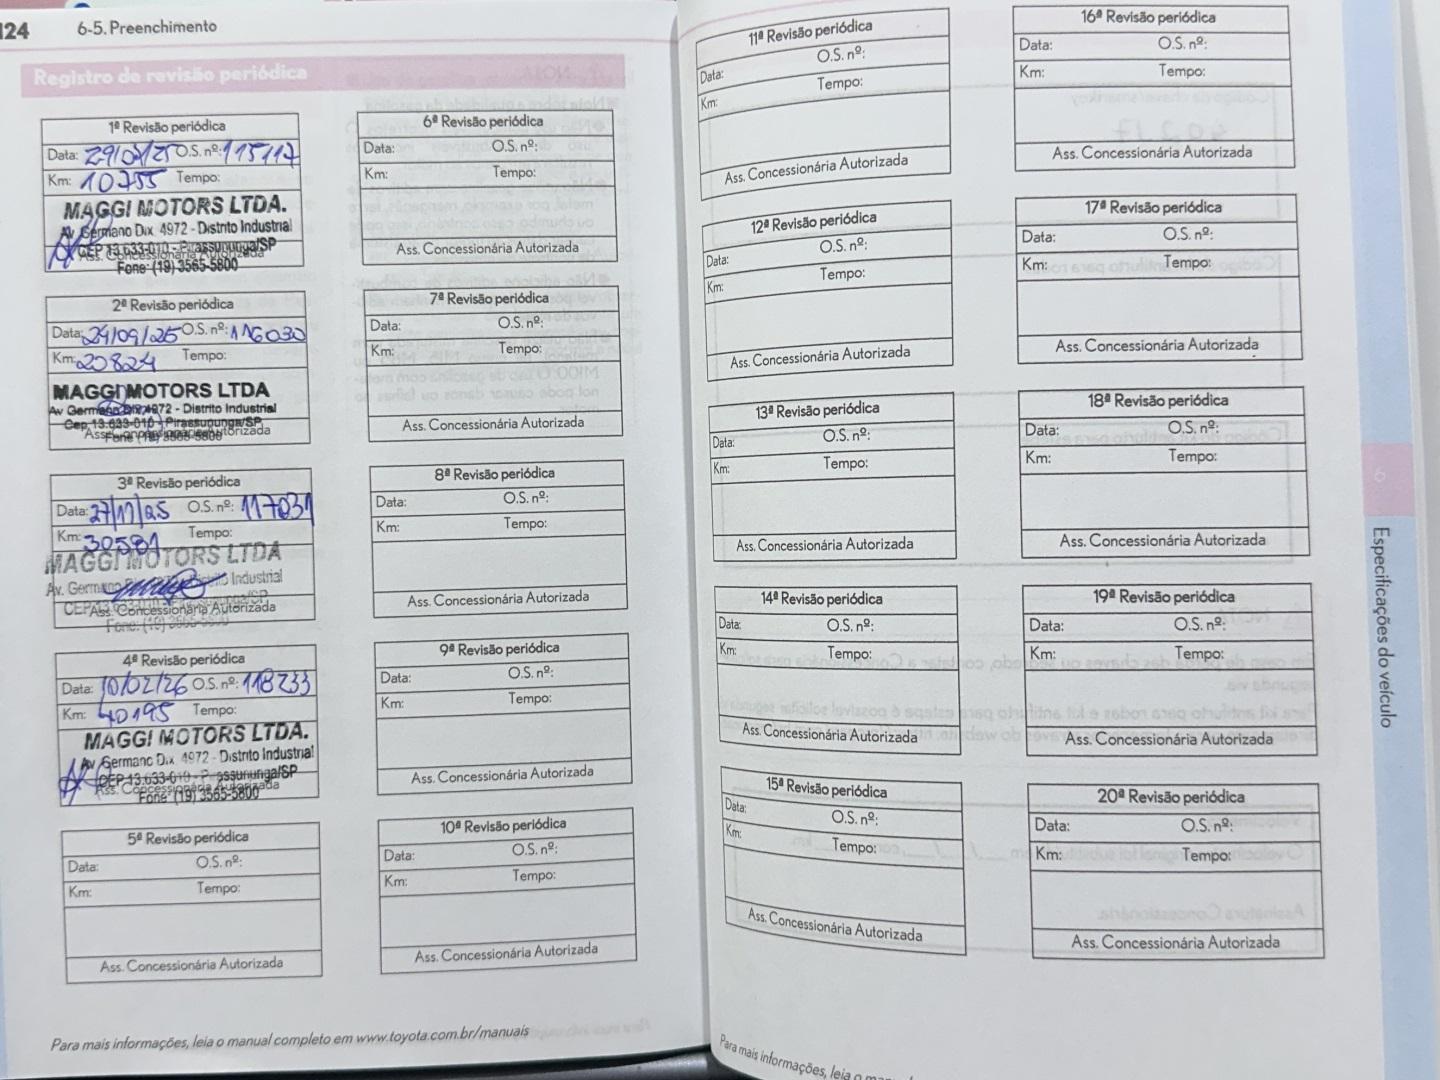 124 6-5. Preenchimento
Registro de revisão periódica
1ª Revisão periódica
Data: O.S. nº: 115117
Km: 10755 Tempo:
MAGGI MOTORS LTDA.
Av Germano Dix 4972 - Distrito Industrial
CEP 13.633-010 - Pirassununga/SP
Ass. Concessionária Autorizada
Fone: (19) 3565-5800
2ª Revisão periódica
Data: 24/09/25 O.S. nº: 116030
Km: 20824 Tempo:
MAGGI MOTORS LTDA
Av Germano Dix 4972 - Distrito Industrial
Cep 13.633-010 - Pirassununga/SP
Ass. Concessionária Autorizada
Fone (19) 3565-5800
3ª Revisão periódica
Data: 27/11/25 O.S. nº: 117031
Km: 30581 Tempo:
MAGGI MOTORS LTDA
Av. Germano Distrito Industrial
CEP
Ass. Concessionária Autorizada
Fone: (19) 3565-5800
4ª Revisão periódica
Data: 10/02/26 O.S. nº: 118233
Km: 40195 Tempo:
MAGGI MOTORS LTDA.
Av Germano Dix 4972 - Distrito Industrial
CEP 13.633-010 - Pirassununga/SP
Ass. Concessionária Autorizada
Fone: (19) 3565-5800
5ª Revisão periódica
Data: O.S. nº:
Km: Tempo:
Ass. Concessionária Autorizada
6ª Revisão periódica
Data: O.S. nº:
Km: Tempo:
Ass. Concessionária Autorizada
7ª Revisão periódica
Data: O.S. nº:
Km: Tempo:
Ass. Concessionária Autorizada
8ª Revisão periódica
Data: O.S. nº:
Km: Tempo:
Ass. Concessionária Autorizada
9ª Revisão periódica
Data: O.S. nº:
Km: Tempo:
Ass. Concessionária Autorizada
10ª Revisão periódica
Data: O.S. nº:
Km: Tempo:
Ass. Concessionária Autorizada
Para mais informações, leia o manual completo em www.toyota.com.br/manuais
11ª Revisão periódica
Data: O.S. nº:
Km: Tempo:
Ass. Concessionária Autorizada
12ª Revisão periódica
Data: O.S. nº:
Km: Tempo:
Ass. Concessionária Autorizada
13ª Revisão periódica
Data: O.S. nº:
Km: Tempo:
Ass. Concessionária Autorizada
14ª Revisão periódica
Data: O.S. nº:
Km: Tempo:
Ass. Concessionária Autorizada
15ª Revisão periódica
Data: O.S. nº:
Km: Tempo:
Ass. Concessionária Autorizada
16ª Revisão periódica
Data: O.S. nº:
Km: Tempo:
Ass. Concessionária Autorizada
17ª Revisão periódica
Data: O.S. nº:
Km: Tempo:
Ass. Concessionária Autorizada
18ª Revisão periódica
Data: O.S. nº:
Km: Tempo:
Ass. Concessionária Autorizada
19ª Revisão periódica
Data: O.S. nº:
Km: Tempo:
Ass. Concessionária Autorizada
20ª Revisão periódica
Data: O.S. nº:
Km: Tempo:
Ass. Concessionária Autorizada
6
Especificações do veículo
Para mais informações, leia o